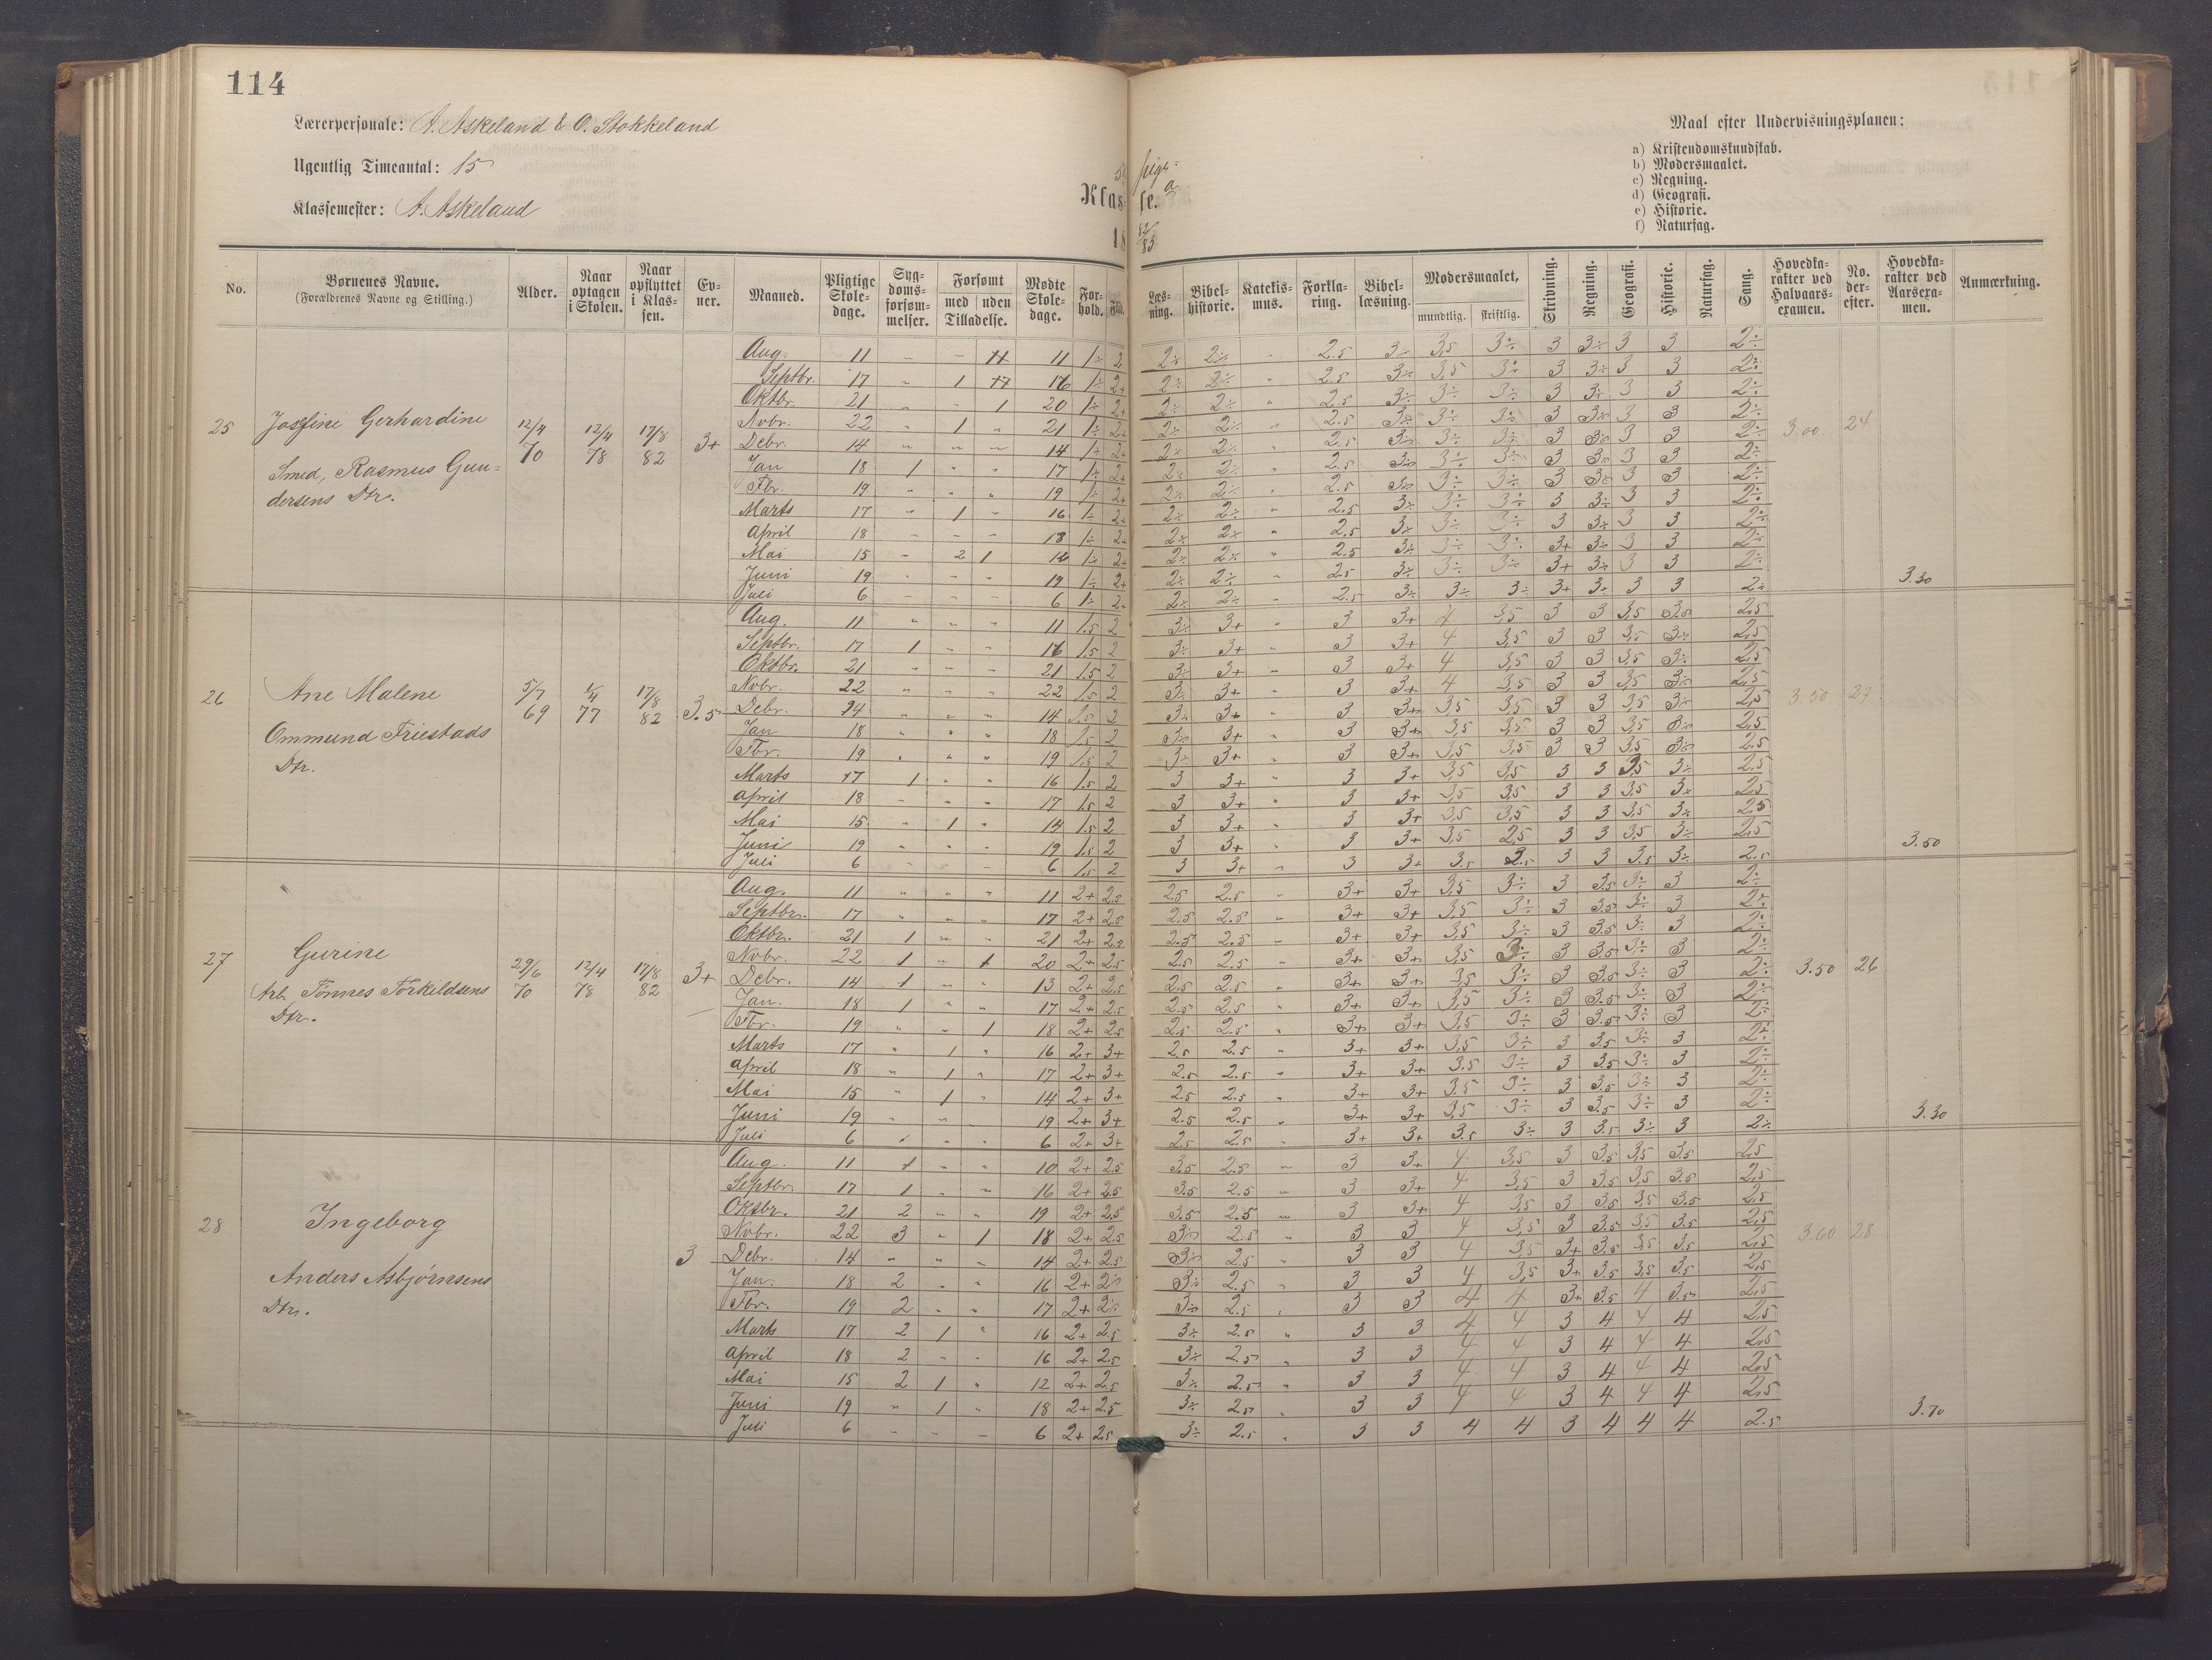 114
Lærerpersonale: A. Askeland & O. Stokkeland
Ugentlig Timeantal: 15
Klassemester: A. Askeland
5te pige
Klas- se. a
18 82/83
Maal efter Undervisningsplanen:
a) Kristendomskundskab.
b) Modersmaalet.
c) Regning.
d) Geografi.
e) Historie.
f) Naturfag.
No. | Børnenes Navne. (Forældrenes Navne og Stilling.) | Alder. | Naar optagen i Skolen. | Naar opflyttet i Klassen. | Evner. | Maaned. | Pligtige Skoledage. | Sygdomsforsømmelser. | Forsømt med uden Tilladelse. | Mødte Skoledage. | Forhold. | Flid. | Læsning. | Bibelhistorie. | Katekismus. | Forklaring. | Bibellæsning. | Modersmaalet, mundtlig. skriftlig. | Skrivning. | Regning. | Geografi. | Historie. | Naturfag. | Sang. | Hovedkarakter ved Halvaarsexamen. | No. derefter. | Hovedkarakter ved Aarsexamen. | Anmærkning.
25 Josfine Gerhardine 12/4 70 12/4 78 17/8 82 3+ 3.00. 24 3.30
Smed, Rasmus Gundersens Dtr.
Aug. 11 - - 11 11 1÷ 2 2÷ 2÷ " 2.5 3÷ 3,5 3÷ 3 3÷ 3 3 2÷
Septbr. 17 " 1 17 16 1÷ 2+ 2÷ 2÷ " 2.5 3÷ 3,5 3÷ 3 3÷ 3 3 2÷
Oktbr. 21 " - 1 20 1÷ 2+ 2÷ 2÷ " 2.5 3÷ 3÷ 3÷ 3 3÷ 3 3 2÷
Novbr. 22 " 1 " 21 1÷ 2+ 2÷ 2÷ " 2.5 3÷ 3÷ 3÷ 3 3÷ 3 3 2÷
Debr. 14 " " " 14 1÷ 2+ 2÷ 2÷ " 2.5 3÷ 3÷ 3÷ 3 3÷ 3 3 2÷
Jan 18 1 " " 17 1÷ 2+ 2÷ 2÷ " 2.5 3÷ 3÷ 3÷ 3 3÷ 3 3 2÷
Fbr. 19 " " " 19 1÷ 2+ 2÷ 2÷ " 2.5 3÷ 3÷ 3÷ 3 3÷ 3 3 2÷
Marts 17 " 1 " 16 1÷ 2+ 2÷ 2÷ " 2.5 3÷ 3÷ 3÷ 3 3÷ 3 3 2÷
April 18 - - - 18 1÷ 2+ 2÷ 2÷ " 2.5 3÷ 3÷ 3÷ 3 3÷ 3 3 2÷
Mai 15 - 2 1 12 1÷ 2+ 2÷ 2÷ " 2.5 3÷ 3÷ 3÷ 3+ 3÷ 3 3 2÷
Juni 19 - - - 19 1÷ 2+ 2÷ 2÷ " 2.5 3÷ 3÷ 3÷ 3+ 3÷ 3 3 2÷
Juli 6 - - - 6 1÷ 2+ 2÷ 2÷ " 2.5 3÷ 3÷ 3÷ 3+ 3÷ 3 3 2÷
26 Ane Malene 5/7 69 1/4 77 17/8 82 3.5 3.50 27 3.50
Ommund Friestads Dtr.
Aug. 11 " " " 11 1.5 2 3÷ 3+ " 3 3+ 4 3,5 3 3 3,5 3.5 2,5
Septbr. 17 1 " " 16 1.5 2 3÷ 3+ " 3 3+ 4 3,5 3 3 3,5 3÷ 2,5
Oktbr. 21 " " " 21 1.5 2 3÷ 3+ " 3 3+ 4 3,5 3 3 3,5 3÷ 2,5
Novbr. 22 " " " 22 1.5 2 3÷ 3+ " 3 3+ 4 3,5 3 3 3,5 3÷ 2,5
Debr. 14 " " " 14 1.5 2 3÷ 3+ " 3 3+ 3,5 3,5 3 3 3,5 3÷ 2,5
Jan 18 " " " 18 1.5 2 3÷ 3+ " 3 3+ 3,5 3,5 3 3 3,5 3÷ 2,5
Fbr. 19 " " " 19 1.5 2 3÷ 3+ " 3 3+ 3,5 3,5 3 3 3,5 3÷ 2.5
Marts 17 1 " " 16 1.5 2 3 3+ " 3 3+ 3,5 3,5 3 3 3,5 3÷ 2.5
April 18 - " " 17 1.5 2 3 3+ " 3 3+ 3,5 3,5 3 3 3,5 3÷ 2,5
Mai 15 " 1 " 14 1.5 2 3 3+ " 3 3+ 3,5 3,5 3 3 3,5 3÷ 2,5
Juni 19 " " " 19 1.5 2 3 3+ " 3 3+ 3,5 2,5 3 3 3,5 3÷ 2,5
Juli 6 - - - 6 1.5 2 3 3+ " 3 3+ 3.5 2.5 3 3 3.5 3÷ 2.5
27 Gurine 29/6 70 12/4 78 17/8 82 3+ 3.50 26 3.30
Arb. Tönnes Törkeldsens Dtr.
Aug. 11 " " " 11 2+ 2.5 2.5 2.5 " 3+ 3+ 3,5 3÷ 3 3.5 3÷ 3 2÷
Septbr. 17 " " " 17 2+ 2.5 2.5 2.5 " 3+ 3+ 3,5 3÷ 3 3.5 3÷ 3 2÷
Oktbr. 21 1 " " 21 2+ 2.5 2.5 2.5 - 3+ 3+ 3,5 3÷ 3 3.5 3÷ 3 2÷
Novbr. 22 1 " 1 20 2+ 2.5 2.5 2.5 " 3+ 3+ 3,5 3÷ 3 3.5 3÷ 3 2÷
Debr. 14 1 " " 13 2+ 2.5 2.5 2.5 " 3+ 3+ 3,5 3÷ 3 3.5 3÷ 3 2÷
Jan. 18 1 " " 17 2+ 2.5 2.5 2.5 " 3+ 3+ 3,5 3÷ 3 3.5 3÷ 3 2÷
Fbr. 19 " " 1 18 2+ 2.5 2.5 2.5 " 3+ 3+ 3,5 3÷ 3 3.5 3÷ 3 2÷
Marts 17 " 1 " 16 2+ 3+ 2.5 2.5 " 3+ 3+ 3,5 3÷ 3 3.5 3÷ 3 2÷
April 18 " 1 " 17 2+ 3+ 2.5 2.5 " 3+ 3+ 3.5 3÷ 3 3.5 3÷ 3 2÷
Mai 15 " 1 " 14 2+ 3+ 2.5 2.5 " 3+ 3+ 3.5 3÷ 3 3.5 3÷ 3 2÷
Juni 19 " " " 19 2+ 3+ 2.5 2.5 " 3+ 3+ 3,5 3÷ 3 3.5 3÷ 3 2÷
Juli 6 " " " 6 2+ 3+ 2.5 2.5 " 3+ 3+ 3.5 3÷ 3 3.5 3÷ 3 2÷
28 Ingeborg 3 3.60 28 3.70
Anders Asbjørnsens Dtr.
Aug. 11 1 " " 10 2+ 2.5 3.5 2.5 " 3 3+ 4 3,5 3 3.5 3,5 3.5 2,5
Septbr. 17 1 " " 16 2+ 2.5 3.5 2.5 " 3 3+ 4 3,5 3 3.5 3,5 3.5 2,5
Oktbr. 21 2 " " 19 2+ 2.5 3.5 2.5 " 3 3+ 4 3,5 3 3.5 3,5 3.5 2,5
Novbr. 22 3 " 1 18 2+ 2.5 3÷ 2.5 " 3 3 4 3,5 3 3.5 3,5 3.5 2,5
Debr. 14 " " " 14 2+ 2.5 3÷ 2.5 " 3 3 4 3,5 3+ 3.5 3,5 3.5 2,5
Jan. 18 2 " " 16 2+ 2÷ 3÷ 2.5 " 3 3 4 3,5 3+ 3.5 3,5 3.5 2,5
Fbr. 19 2 " " 17 2+ 2÷ 3÷ 2.5 " 3 3 4 4 3+ 3.5 4 3.5 2,5
Marts 17 2 1 " 16 2+ 2.5 3÷ 2.5 " 3 3 4 4 3 4 4 4 2,5
April 18 2 - - 16 2+ 2.5 3÷ 2.5 " 3 3 4 4 3 4 4 4 2,5
Mai 15 2 1 " 12 2+ 2.5 3÷ 2.5 " 3 3 4 4 3 4 4 4 2,5
Juni 19 " 1 " 18 2+ 2.5 3÷ 2.5 " 3 3 4 4 3 4 4 4 2,5
Juli 6 - - - 6 2+ 2.5 3÷ 2.5 " 3 3 4 4 3 4 4 4 2.5